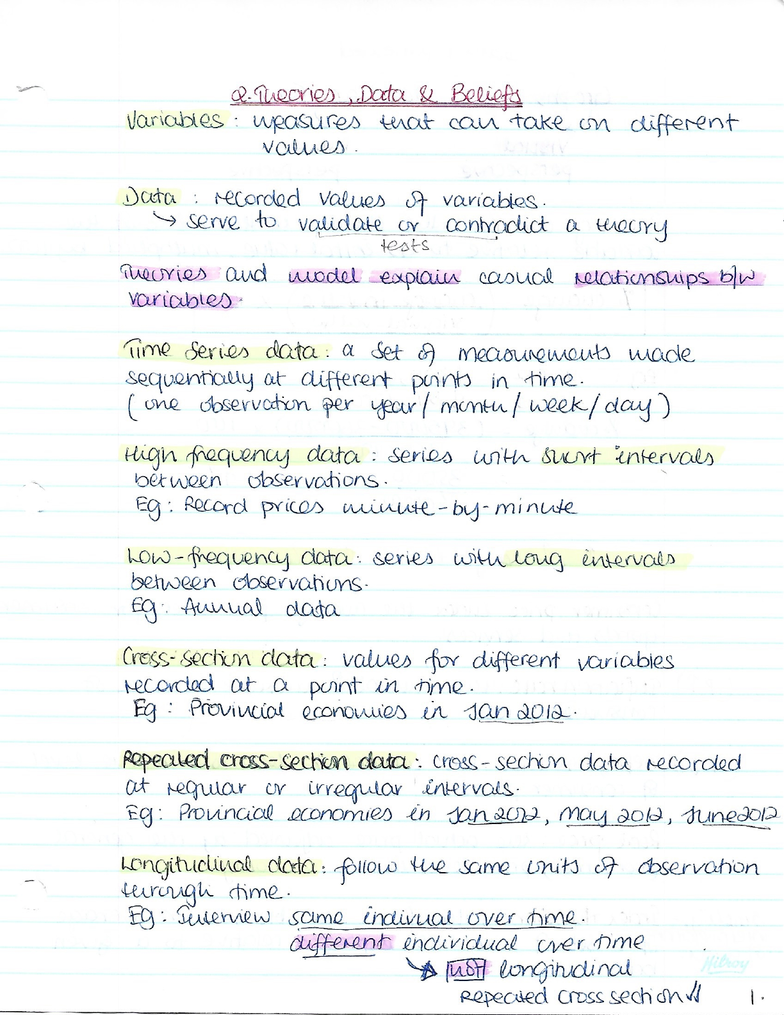 2. Theories, Data & Beliefs
Variables : measures that can take on different
values.
Data : recorded values of variables.
↳ serve to validate or contradict a theory
tests
Theories and model explain casual relationships b/w
variables.
Time series data : a set of measurements made
sequentially at different points in time.
(one observation per year/month/week/day)
High frequency data : series with short intervals
between observations.
Eg : Record prices minute-by-minute
Low-frequency data : series with long intervals
between observations.
Eg : Annual data
Cross-section data : values for different variables
recorded at a point in time.
Eg : Provincial economies in Jan 2012.
Repeated cross-section data : cross-section data recorded
at regular or irregular intervals.
Eg : Provincial economies in Jan 2012, May 2012, June 2012
Longitudinal data : follow the same units of observation
through time.
Eg : Interview same indivual over time.
different individual over time
↳ not longitudinal
Repeated cross section
Hilroy
1.